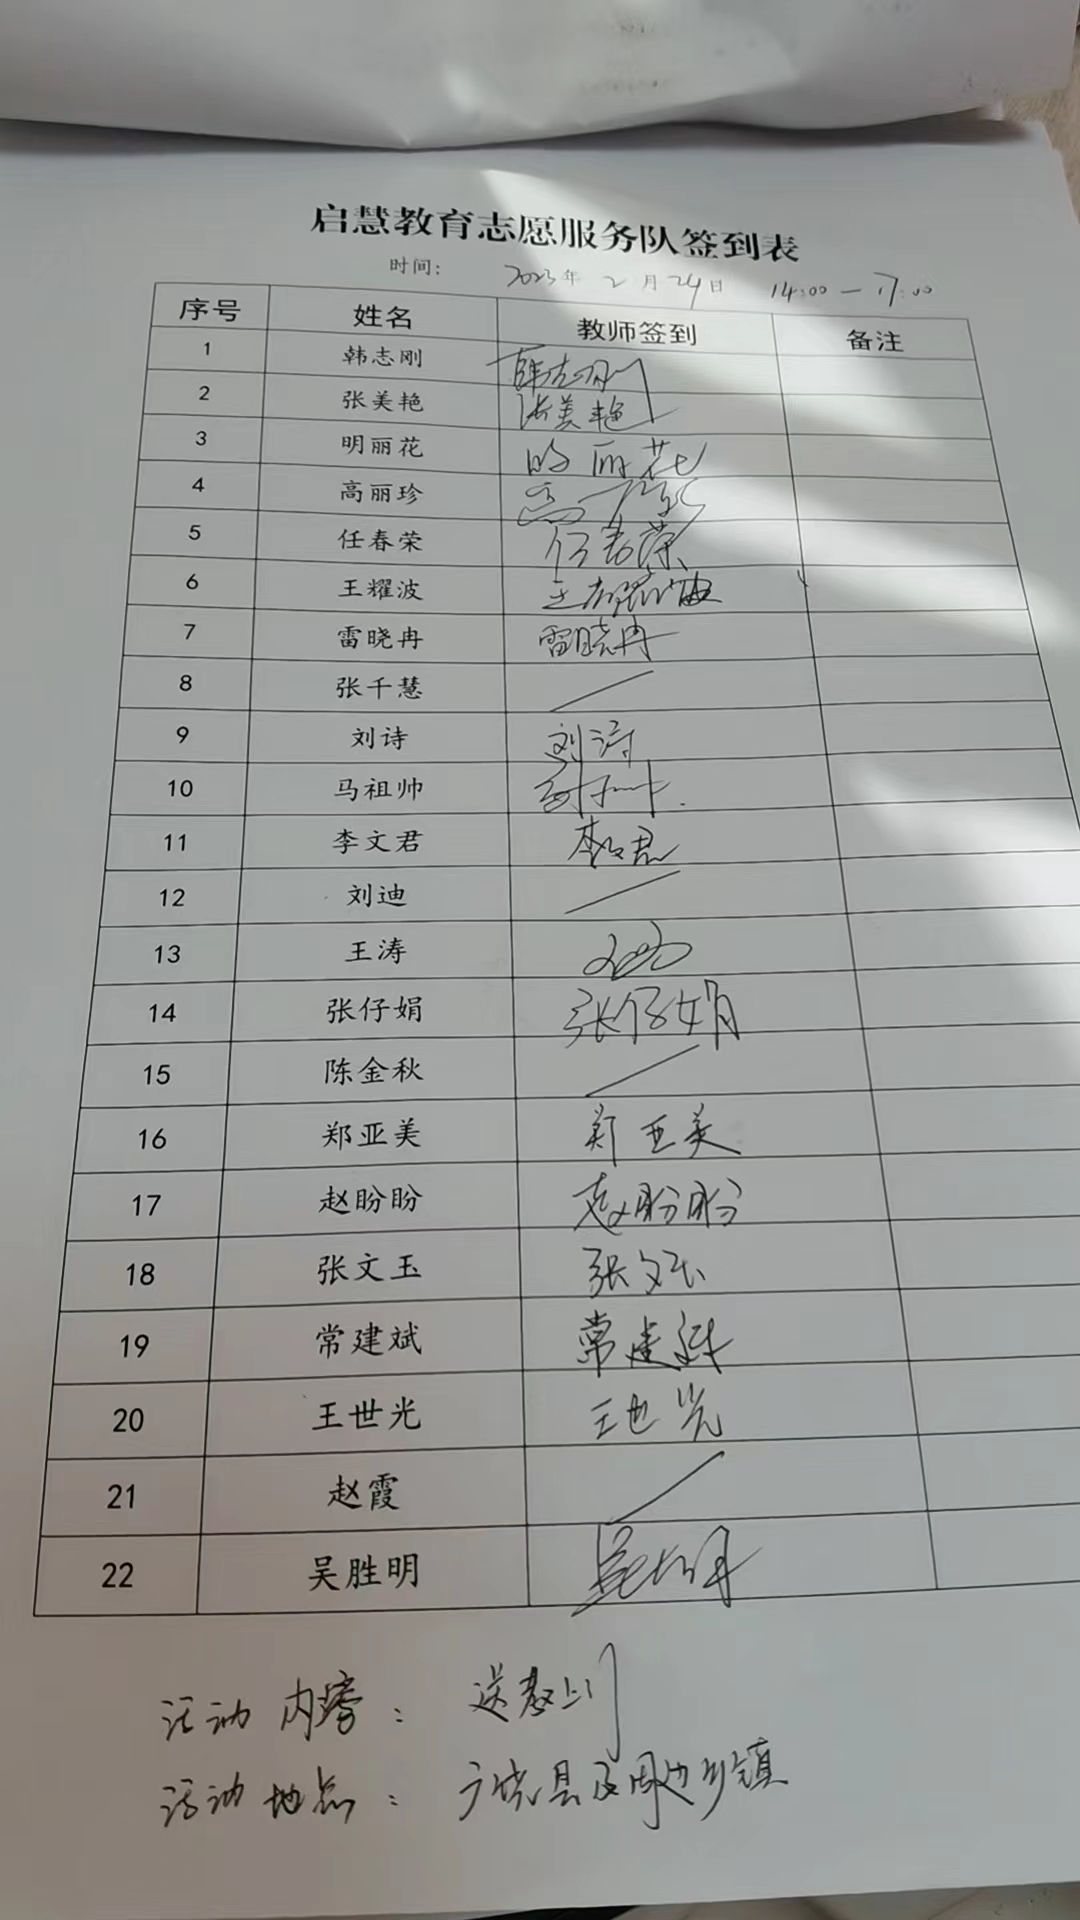 启慧教育志愿服务队签到表
时间： 2023年 2月24日 14:00—17:00
序号 姓名 教师签到 备注
1 韩志刚 韩志刚
2 张美艳 张美艳
3 明丽花 明丽花
4 高丽珍
5 任春荣 任春荣
6 王耀波 王耀波
7 雷晓冉 雷晓冉
8 张千慧
9 刘诗 刘诗
10 马祖帅
11 李文君 李文君
12 刘迪
13 王涛
14 张仔娟 张仔娟
15 陈金秋
16 郑亚美 郑亚美
17 赵盼盼 赵盼盼
18 张文玉 张文玉
19 常建斌 常建斌
20 王世光 王世光
21 赵霞
22 吴胜明
活动内容： 送教上门
活动地点： 广饶县及周边乡镇